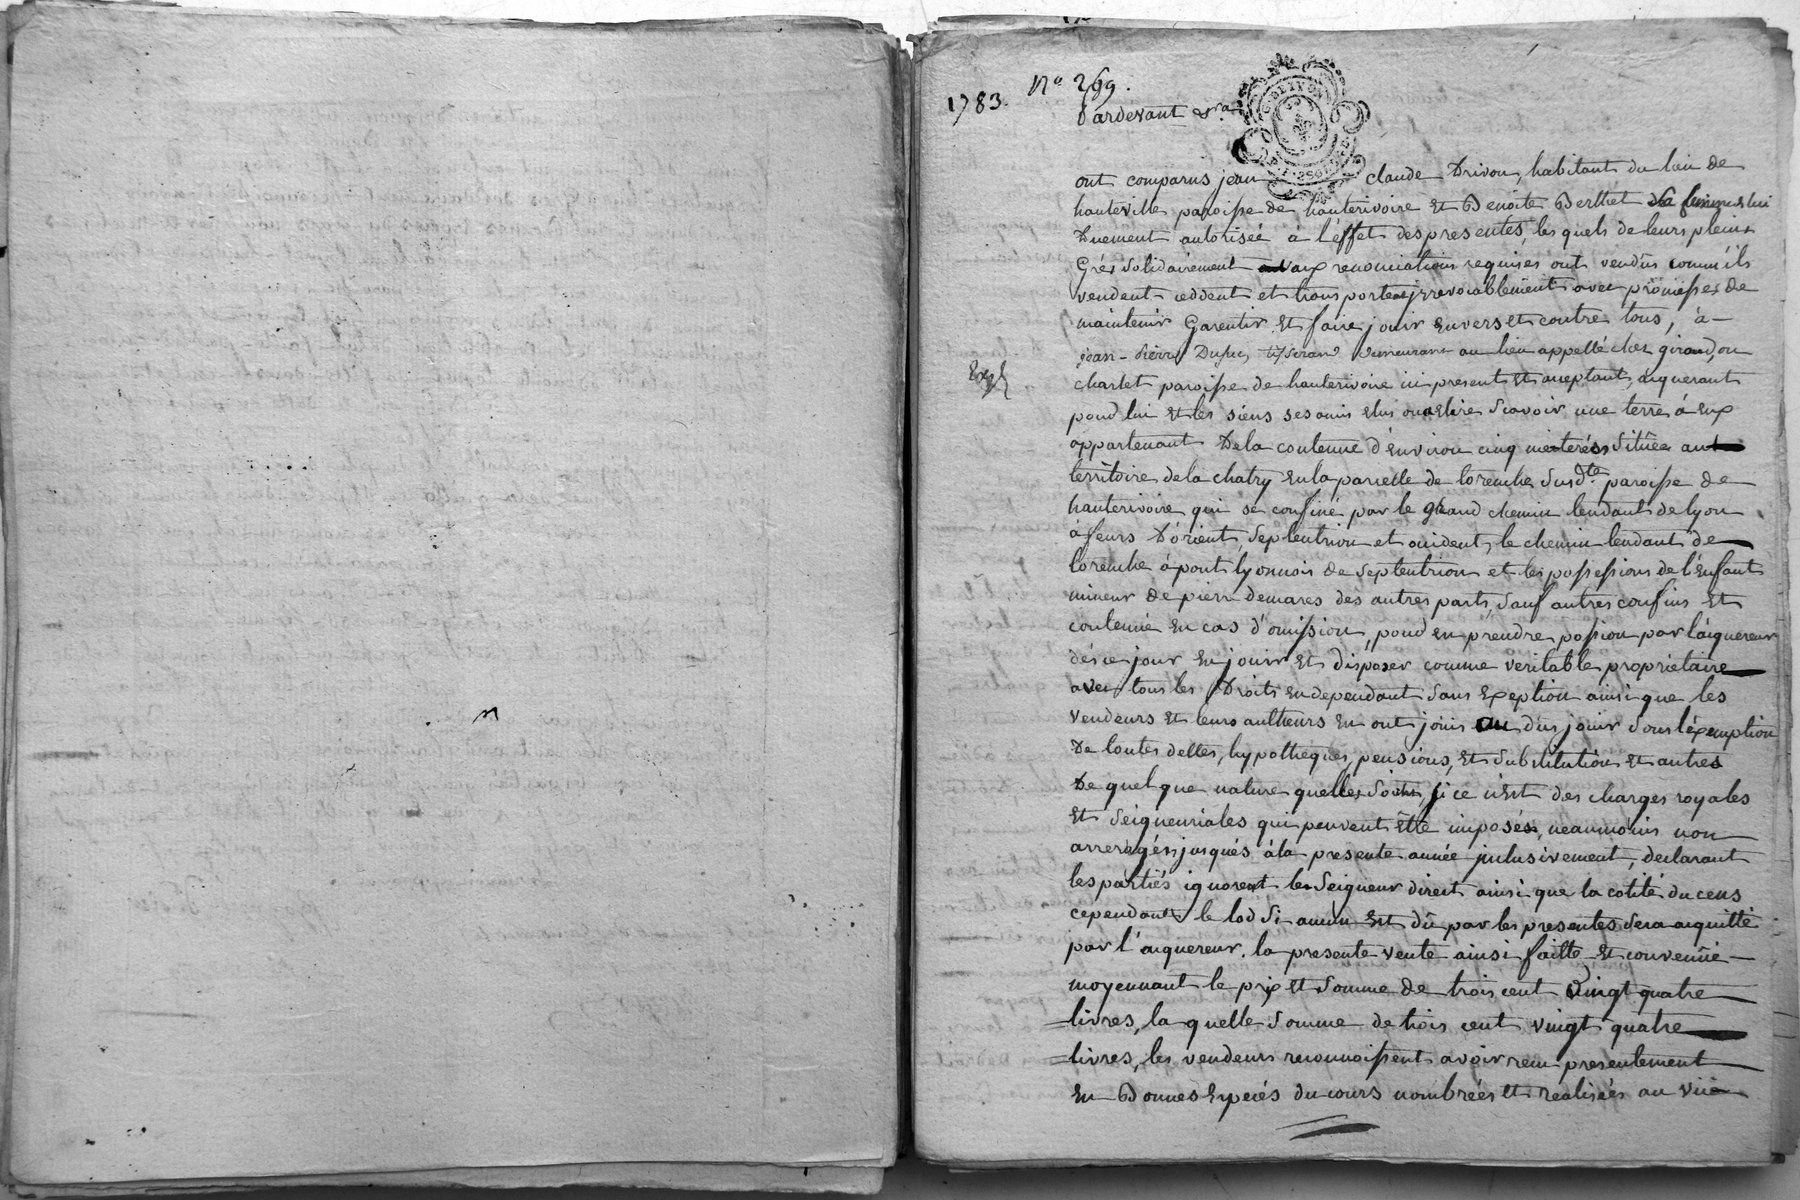 1783.
Nº 269.
Pardevant &ra
G. DE LYON
ont comparus jean claude Drivon, habitant du lieu de
hauteville paroisse de hauterivoire et Benoite Berthet sa femme de lui
Duement autorisée à l'effet des presentes, les quels de leurs pleins
Grés solidairement aux renonciations requises ont vendus comm'ils
vendent ceddent et transportent irrevocablement avec promesses de
maintenir Garentir et faire jouir envers et contre tous, à
jean-pierre Dupuy tisserand demeurant au lieu appellé chez giraud, ou
Exp
charlet paroisse de hauterivoire ici present et aceptant, aquerant
pour lui et les siens ses amis elus ou a elire scavoir une terre à eux
appartenant De la contenue d'environ cinq meterées située au
territoire de la chatry en la parcelle de lorenche susdte. paroisse de
hauterivoire qui se confine par le grand chemin tendant de lyon
à feurs D'orient, septentrion et occident, le chemin tendant de
lorenche à pont lyonnois de septentrion et les possessions de l'Enfant
mineur de pierre demares des autres parts, sauf autres confins et
contenue en cas d'omission, pour en prendre possion par l'aiquereur
dès ce jour en jouir et disposer comme veritable proprietaire
avec tous les Droits en dependant sans exeption ainsi que les
vendeurs et leurs autheurs en ont jouis ou dus jouir sous l'exemption
De toutes dettes, hypotheques, pensions, et substitution et autres
De quelque nature quelles soient, si ce n'est des charges royales
et seigneuriales qui peuvent être imposés, neanmoins non
arreragés jusqués à la presente année inclusivement, declarant
les partiés ignorent le seigneur direct ainsi que la cotité du cens
cependant le lod si aucun est dû par les presentes sera aquitté
par l'aquereur. la presente vente ainsi faitte et convenüe
moyennant le prix et somme de trois cent vingt quatre
livres, la quelle somme de trois cent vingt quatre
livres, les vendeurs reconnoissent avoir recu presentement
en Bonnes Especés du cours nombréés et réalisées au vüe